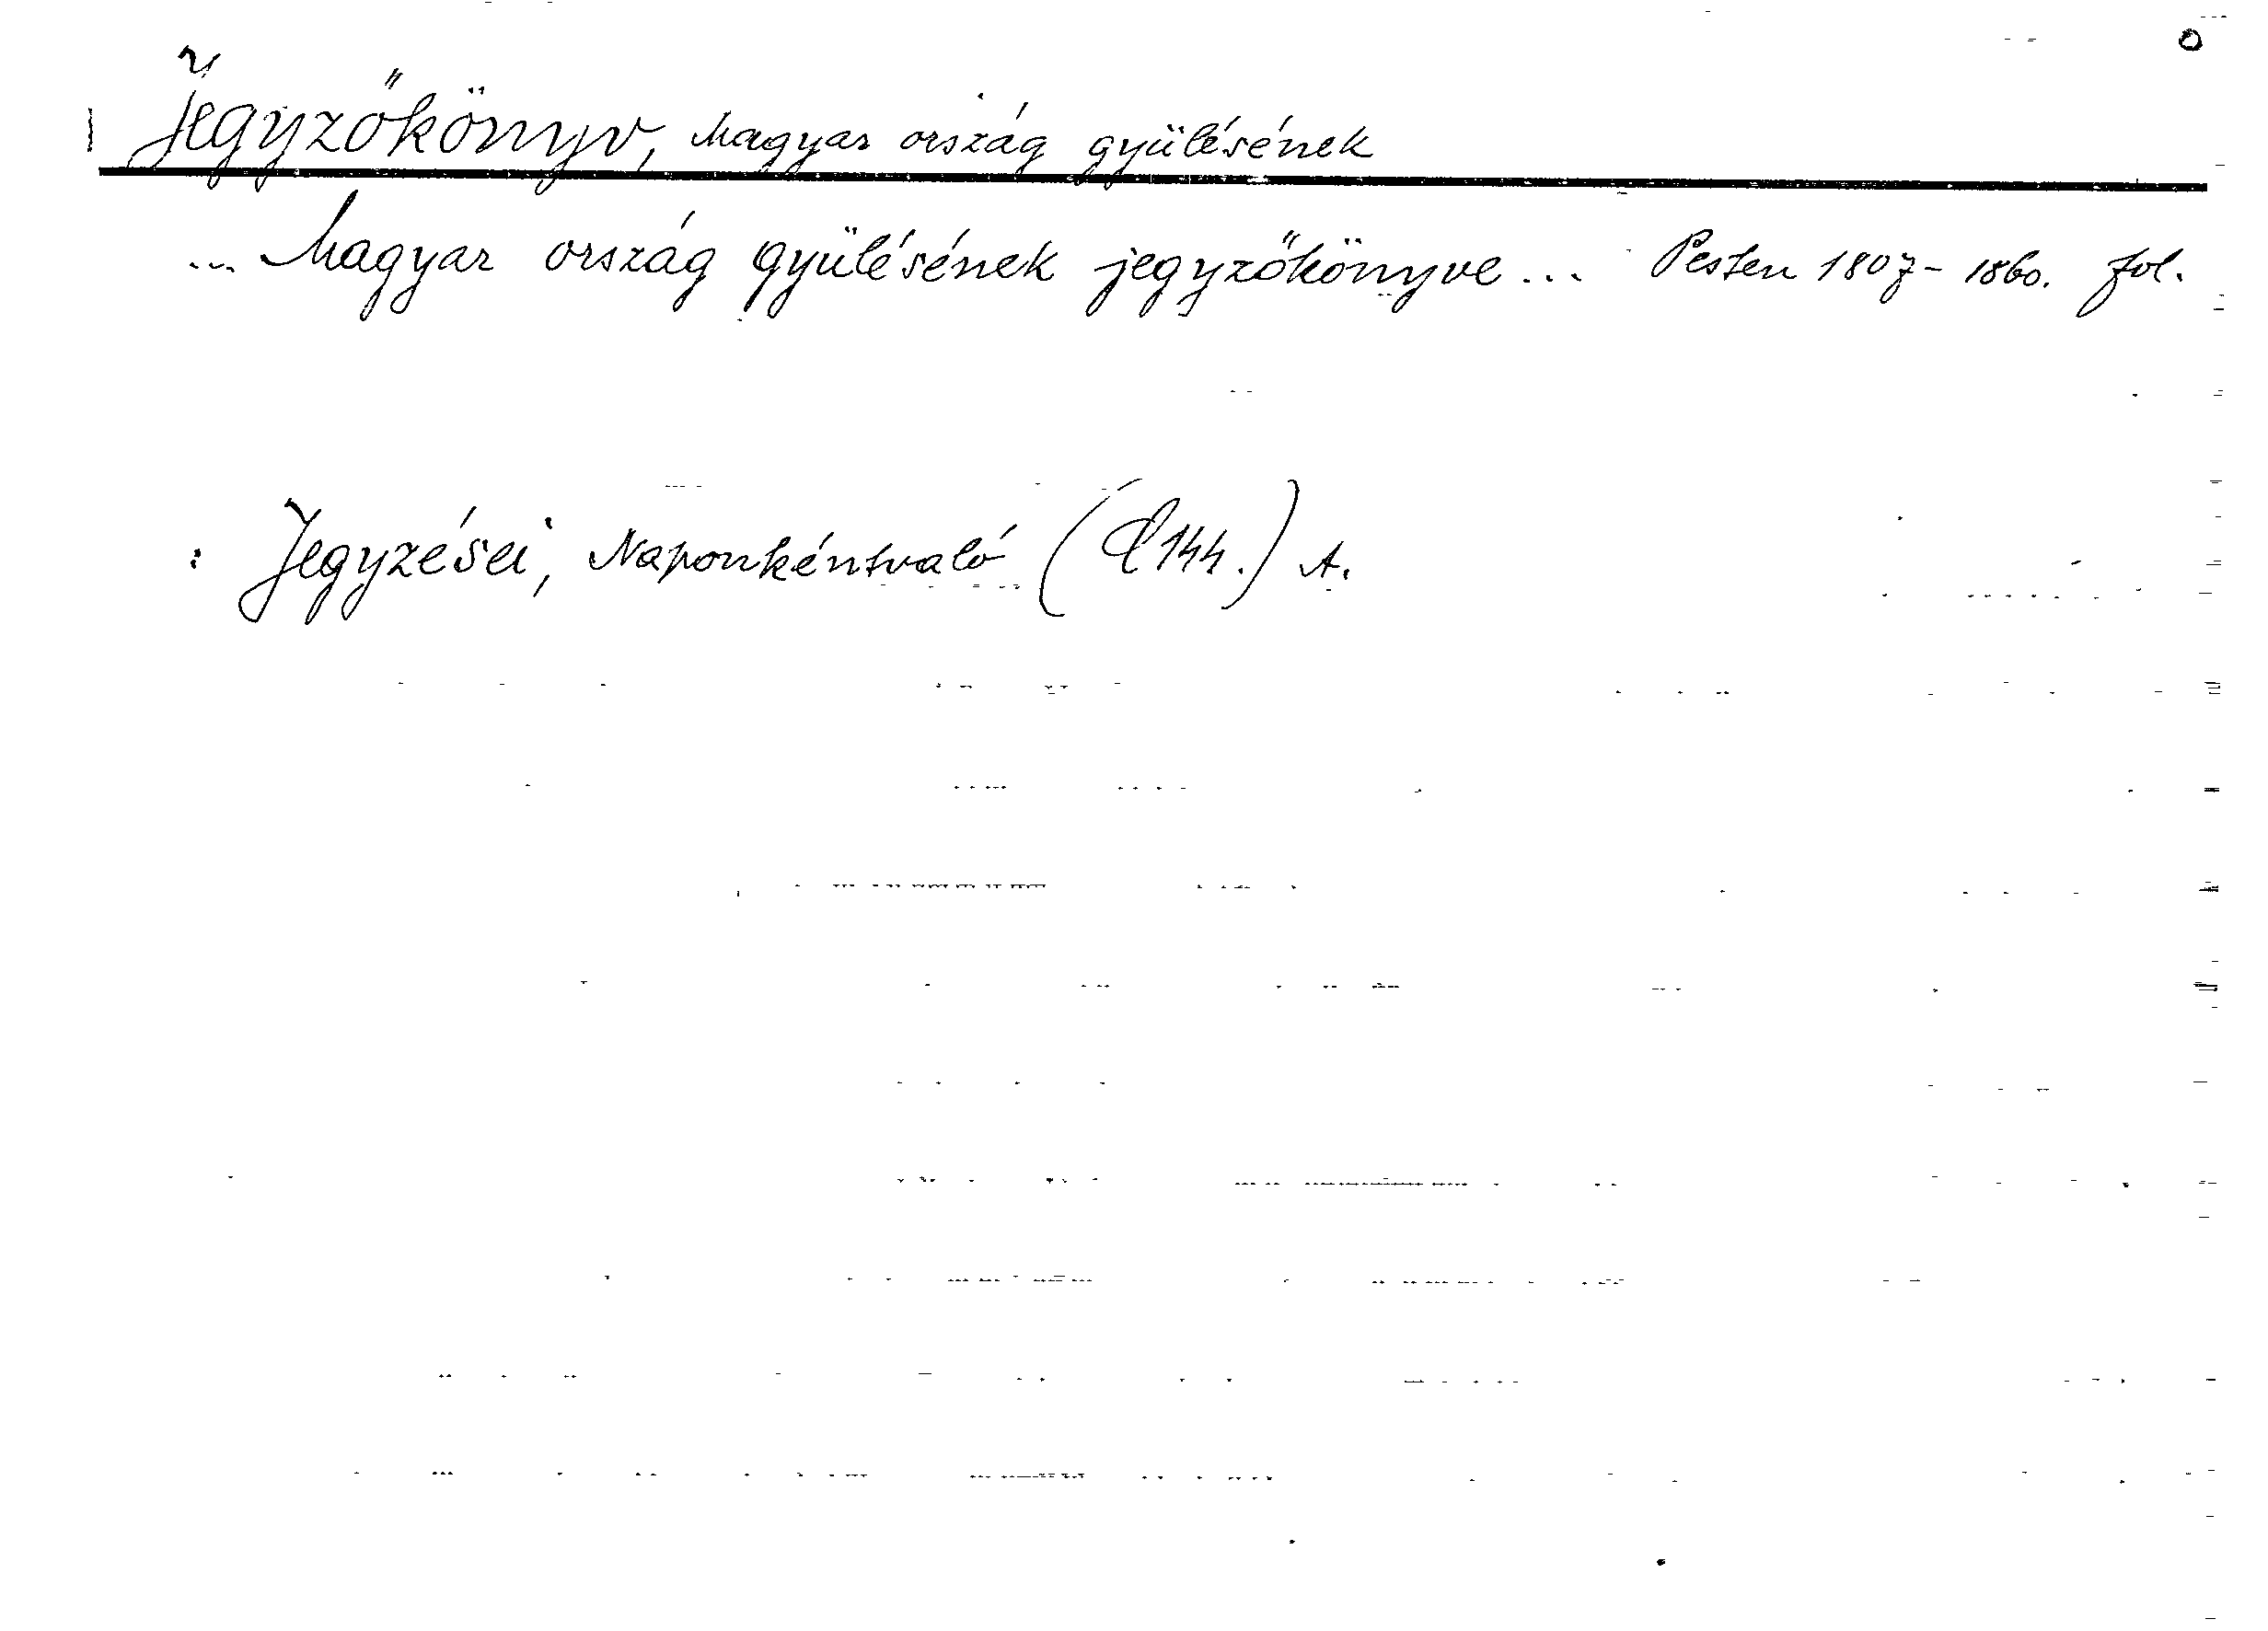 Jegyzőkönyv, Magyar ország gyülésének
... Magyar ország gyülésének jegyzőkönyve ... Pesten 1807-1860. fol.
: Jegyzései, Naponkéntvaló ( 144.) A.